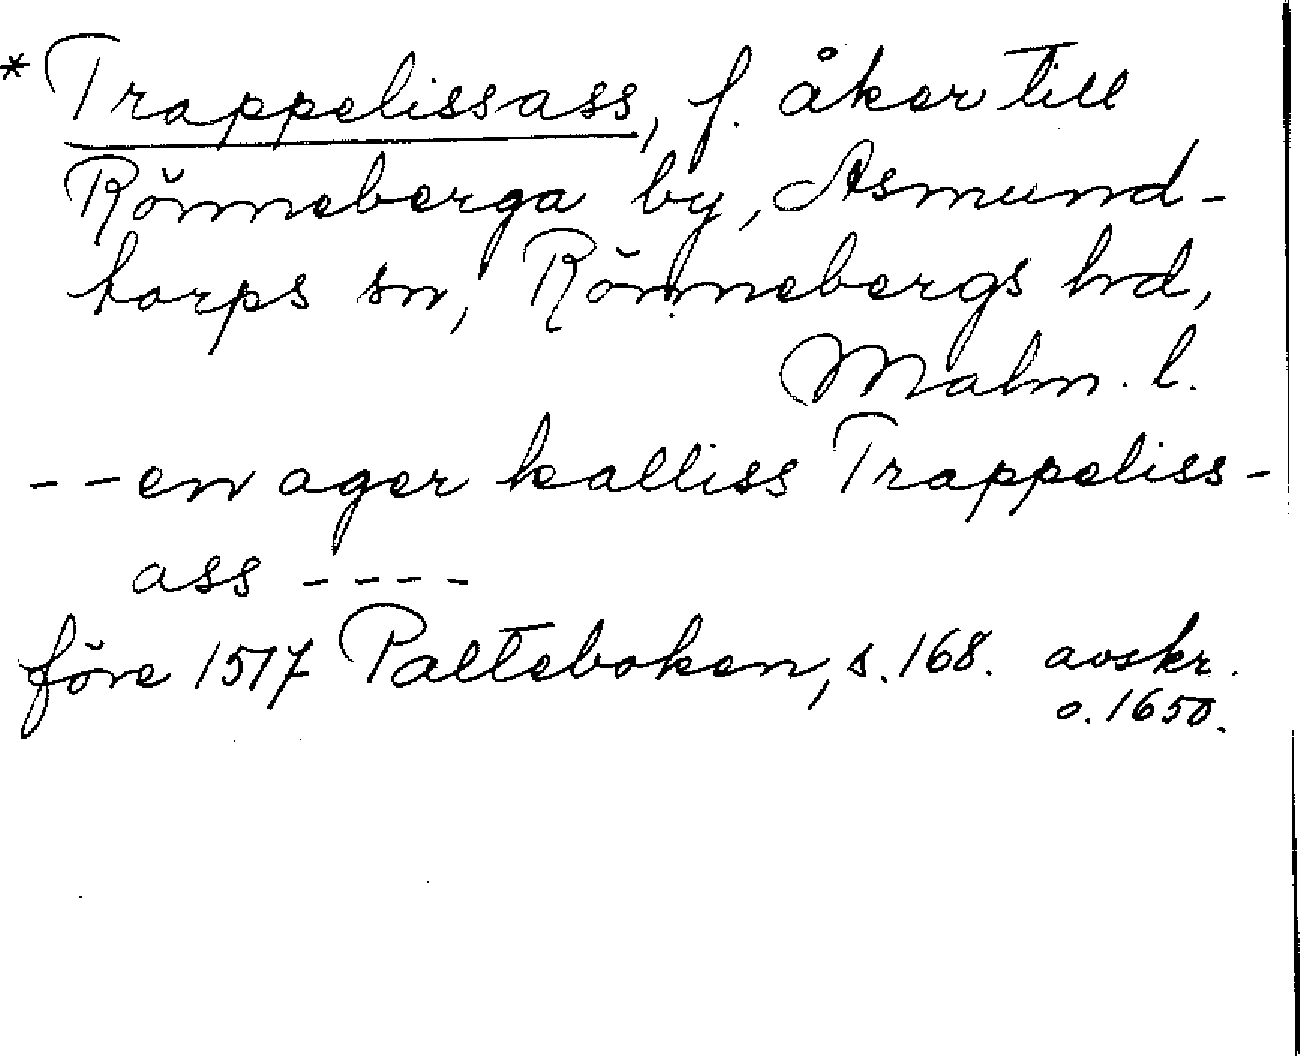 * Trappelissass, f. åker till
Rönneberga by, Asmund-
torps sn, Rönnebergs hd,
Malm. l.
-- en ager kalliss Trappeliss-
ass ----
före 1517 Palteboken, s. 168. avskr.
o. 1650.